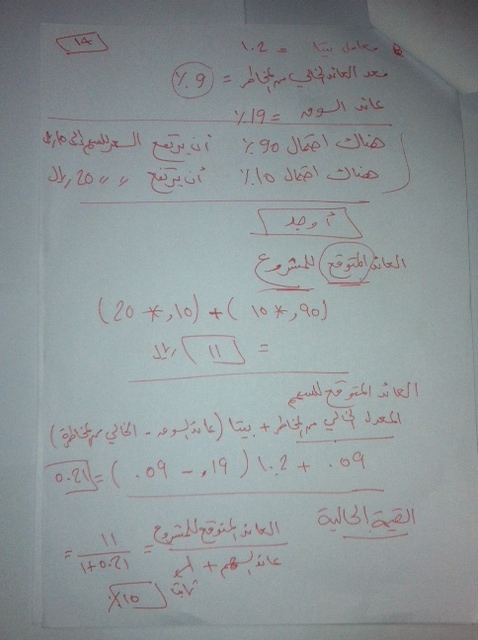 14
معامل بيتا = 1.2
معدل العائد الخالي من المخاطر = 9٪
عائد السوق = 19٪
هناك احتمال 90٪ أن يرتفع السعر للسهم إلى 10 ريال
هناك احتمال 10٪ أن يرتفع ,, ,, 20 ريال
أوجد
العائد المتوقع للمشروع
(20 * ,10) + (10 * ,90)
= 11 ريال
العائد المتوقع للسهم
المعدل الخالي من المخاطر + بيتا (عائد السوق - الخالي من المخاطرة)
.09 + 1.2 (.19 - .09) = 0.21
القيمة الحالية
العائد المتوقع للمشروع = 11
عائد السهم + 1+0.21 =
ثابت
10٪